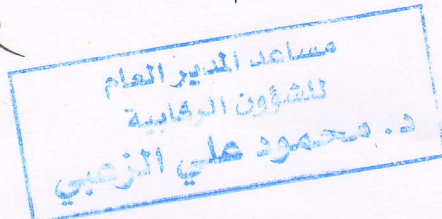 مساعد المدير العام
للشؤون الرقابية
د. محمود علي الزعبي